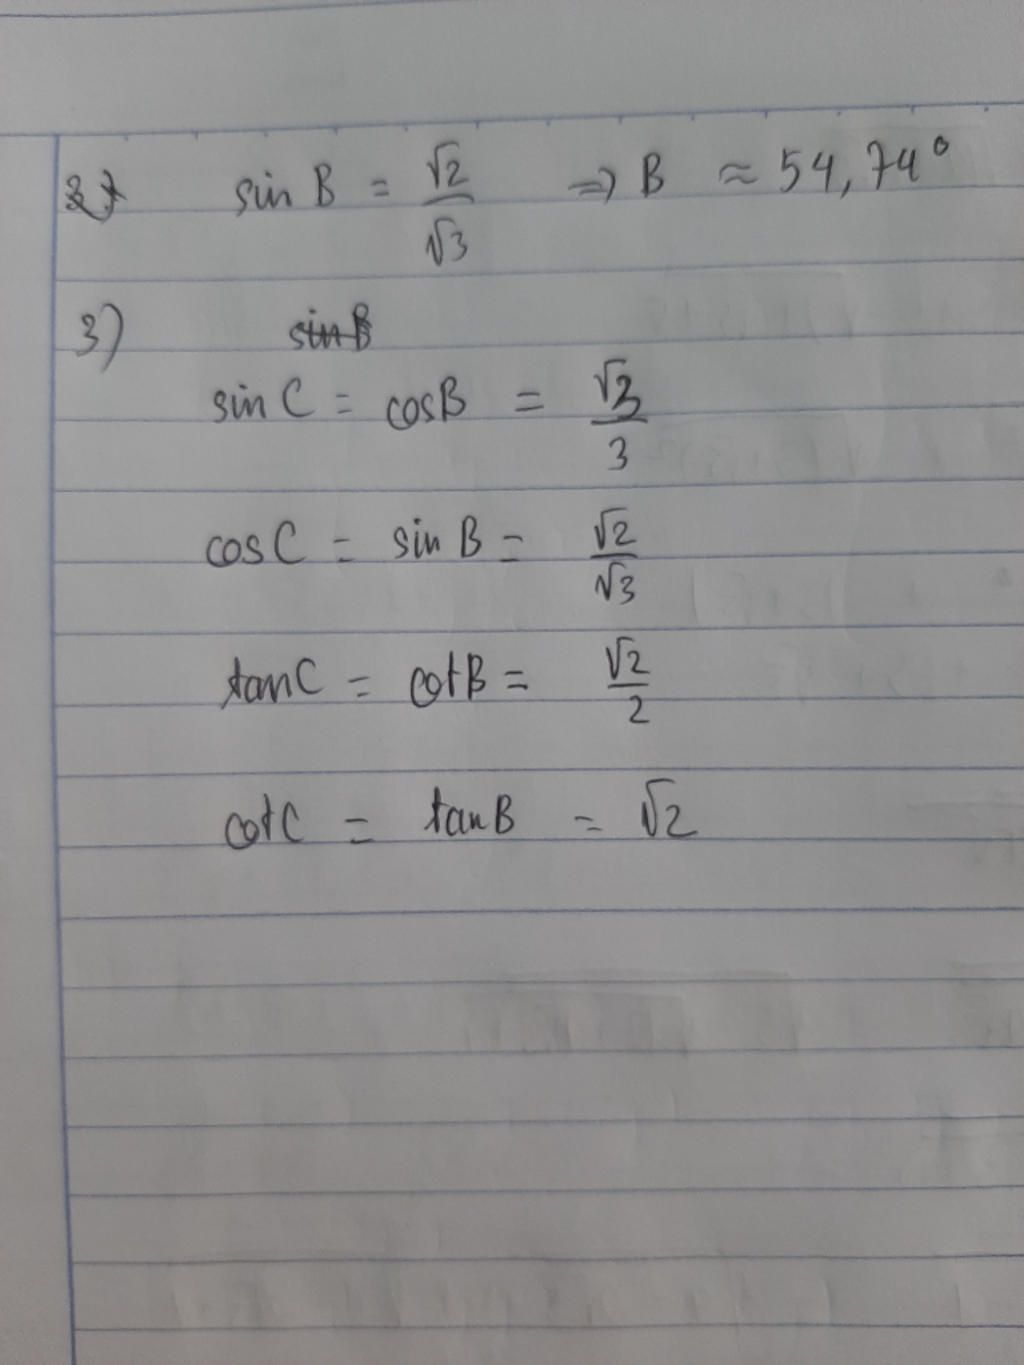 2) sin B = √2/√3 => B ≈ 54,74°
3) sin B
sin C = cos B = √3/3
cos C = sin B = √2/√3
tan C = cot B = √2/2
cot C = tan B = √2